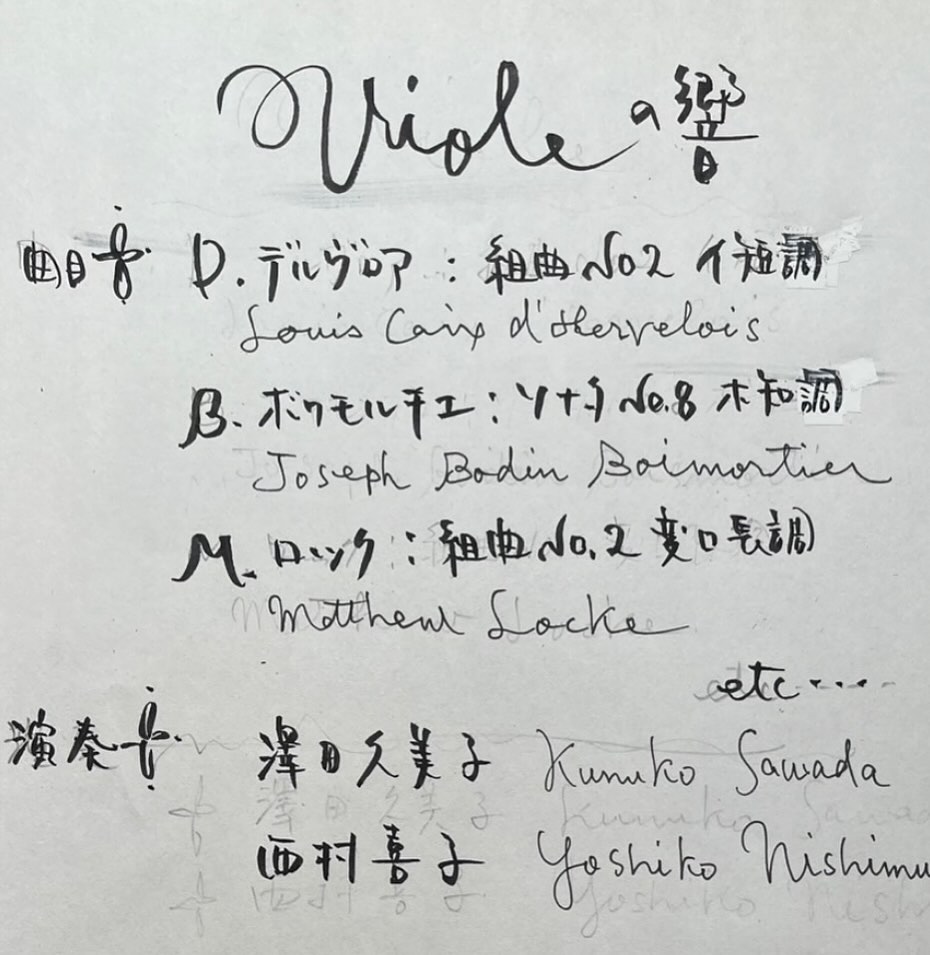 Violeの響
曲目 D. デルヴロア：組曲No2 イ短調
Louis Caix d'Hervelois
B. ボワモルチエ：ソナタNo.8 ホ短調
Joseph Bodin Boimortier
M. ロック：組曲No.2 変ロ長調
Matthew Locke
etc....
演奏 澤田久美子 Kumiko Sawada
西村喜子 Yoshiko Nishimu